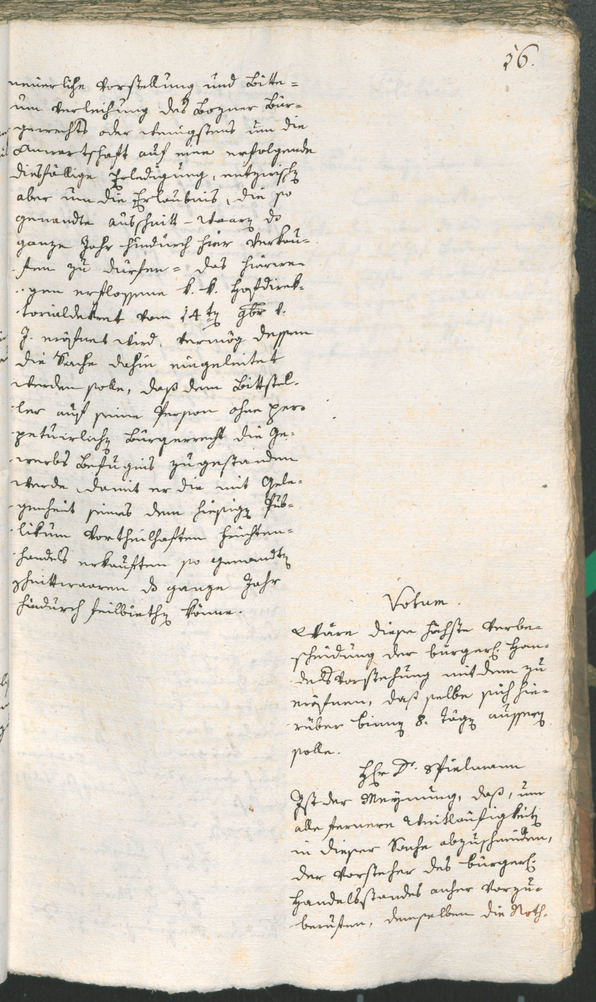 56.
neuerliche Vorstellung und Bitte=
um Verleihung des Bozner Bür-
gerrechts oder wenigstens um die
Anwartschaft auf eine erfolgende
diesfällige Erledigung,
aber um die Erlaubnis, die so
genandte Ausschnitt-Waare das
ganze Jahr hindurch hier verkau-
fen zu dürfen= das
gen erflossene k. k. Hofdirek-
torialdekret vom 14ten 9br v.
J. eröfnet wird, vermög dessen
die Sache dahin eingeleitet
werden solle, daß dem Bittstel-
ler auf seine Person ohne per-
petuirliches Bürgerrecht die Ge-
werbs Befugnis zugestanden
werde, damit er die mit Gele-
genheit seines dem hiesigen Pub-
likum vortheilhaften
handels erkauften so genandten
Schnittwaaren das ganze Jahr
hindurch feilbiethen könne.
Votum.
Wäre diese höchste Verbe-
scheidung der bürgerl. Han-
delsvorstehung mit dem zu
eröfnen, daß selbe sich hie-
rüber binnen 8. Tägen äussern
solle.
Hr. Dr. Spielmann
Ist der Meynung, daß, um
alle fernere Weitläufigkeiten
in dieser Sache abzuschneiden,
der Vorsteher des bürgerl.
Handelsstandes anher vorzu-
berufen, demselben die Noth-